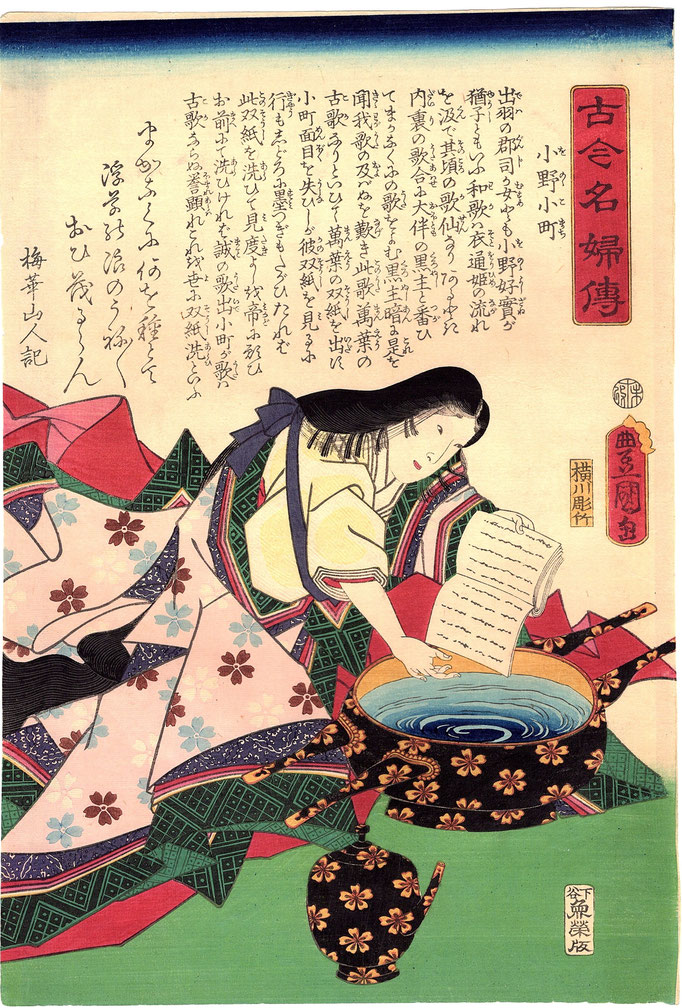 古今名婦傳
小野小町
出羽の郡司の女とも小野好實が
猶子ともいふ和歌ハ衣通姫の流れ
を汲で其頃の歌仙なりある時
内裏の歌合に大伴の黒主と番ひ
てまかなくの歌をよむ黒主暗に是を
聞我歌の及バぬを歎き此歌萬葉の
古歌なりといひて萬葉の双紙を出に
小町面目を失ひしが彼双紙を見るに
行もしどろに墨つぎもたがひたれば
此双紙を洗ひて見度よしを帝に願ひ
お前にて洗ひけれバ誠の歌出小町が歌ハ
古歌ならぬ誉顕れたれを世に双紙洗といふ
まかなくに何を種とて
浮草の波のうね〱
おひ茂るらん
梅華山人記
豊国画
横川彫竹
下谷
魚榮版